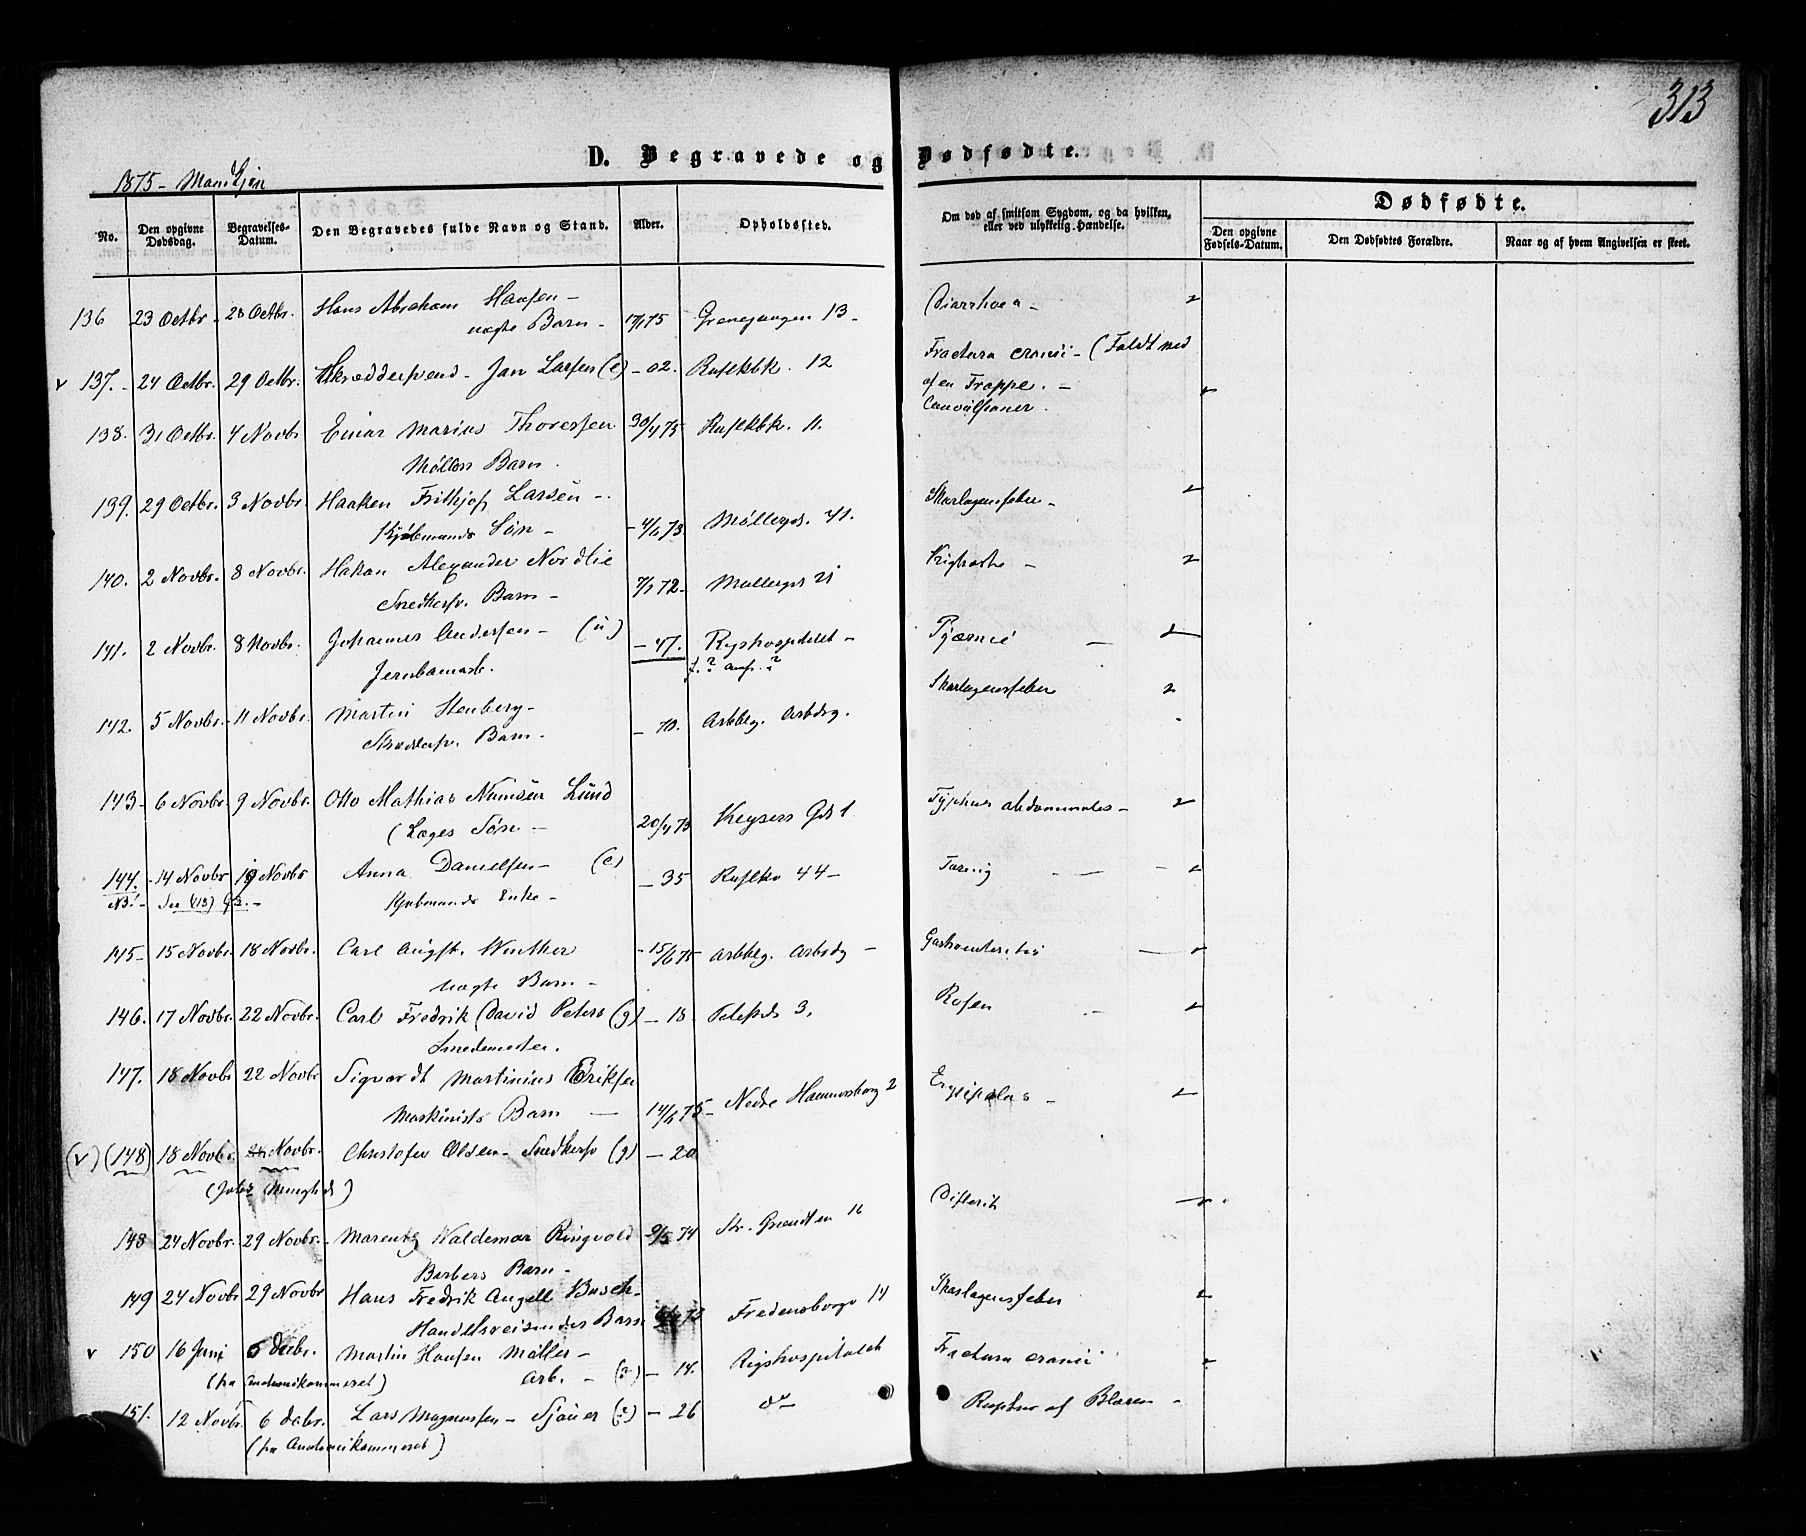 313
D. Begravede og Dødfødte.
1875 - Mandkjøn
No.
Den opgivne Dødsdag.
Begravelses-Datum.
Den Begravedes fulde Navn og Stand.
Alder.
Opholdssted.
Om død af smitsom Sygdom, og da hvilken, eller ved ulykkelig Hændelse.
Dødfødte.
Den opgivne Fødsels-Datum.
Den Dødfødtes Forældre.
Naar og af hvem Angivelsen er skeet.
136 23 Octbr. 28 Octbr. Hans Abraham Hansen - Diarrhoea -
uægte Barn - 17/1 75 Grønnegaugen 13 -
v 137. - 24 Octbr. 29 Octbr. Skræddersvend - Jan Larsen (e) - 02. Rusløkbk. 12 Fractura cranii - (Faldt ned
af en Trappe. -
138. 31 Octbr. 4 Novbr Einar Marius Thoresen 30/4 75 Rusløkbk. 11. Convulsioner.
Møllers Barn.
139. 29 Octbr. 3 Novbr Haaken Frithjof Larsen - Skarlagensfeber -
Kjøbmands Søn - - 4/6 73. Møllergd. 41.
140. 2 Novbr. 8 Novbr. Hakan Alexander Nordlie Kighoste -
Snedkersv. Barn - 7/7 72 - Møllergd 21
141. 2 Novbr. 8 Novbr. Johannes Andersen - (u) - 47. Rigshospitalet - Pyæmie -
Jernbanearb. f. ? ?
142. 5 Novbr. 11 Novbr. Martin Stenberg - - 10. Arbbg. Arbdsg. Skarlagensfeber
Skræddersv. Barn -
143 - 6 Novbr. 9 Novbr. Otto Mathias Numsen Lund Typhus abdominales -
(Læges Søn - 20/4 73 Keysers Gd 1
144. - 14 Novbr 19 Novbr Anna Danielsen - (e) - 35 Rusløkv 44 - Tæring
NB! - See (118) -
Kjøbmands Enke -
145 - 15 Novbr. 18 Novbr. Carl August Winther - 15/6 75 Arbbg. Arbsdg - Gastroenteritis
uægte Barn -
146. 17 Novbr. 22 Novbr. Carl Fredrik David Peters (g) - 18 3. Rosen
Smedemester.
147. 18 Novbr 22 Novbr Sigvardt Martinius Eriksen Erysipelas -
Maskinists Barn - 14/6 75 - Nedre Hammersborg 2
(v) (148) 18 Novbr. Novbr. Christofer Olsen - Snedkersv (g) - 20
(Jakobs Menighed)
148 24 Novbr. 29 Novbr. Marentz Waldemar Ringvold 9/5 74 Str. Grændsen 16 Difterit
Barbers Barn -
149 24 Novbr 29 Novbr Hans Fredrik Angell Busch - Skarlagensfeber
Handelsreisendes Barn 73 Fredensborgv 14
v 150 16 Juni 6 Decbr. Martin Hansen Møller - Fractura cranii
(fra Anatomikammeret) Arb. - (?) - 14. Rigshospitalet
151. 12 Novbr. 6 decbr. Lars Magnussen - Sjauer (?) - 26 do - Ruptur af Blæren -
(fra Anatomikammeret)